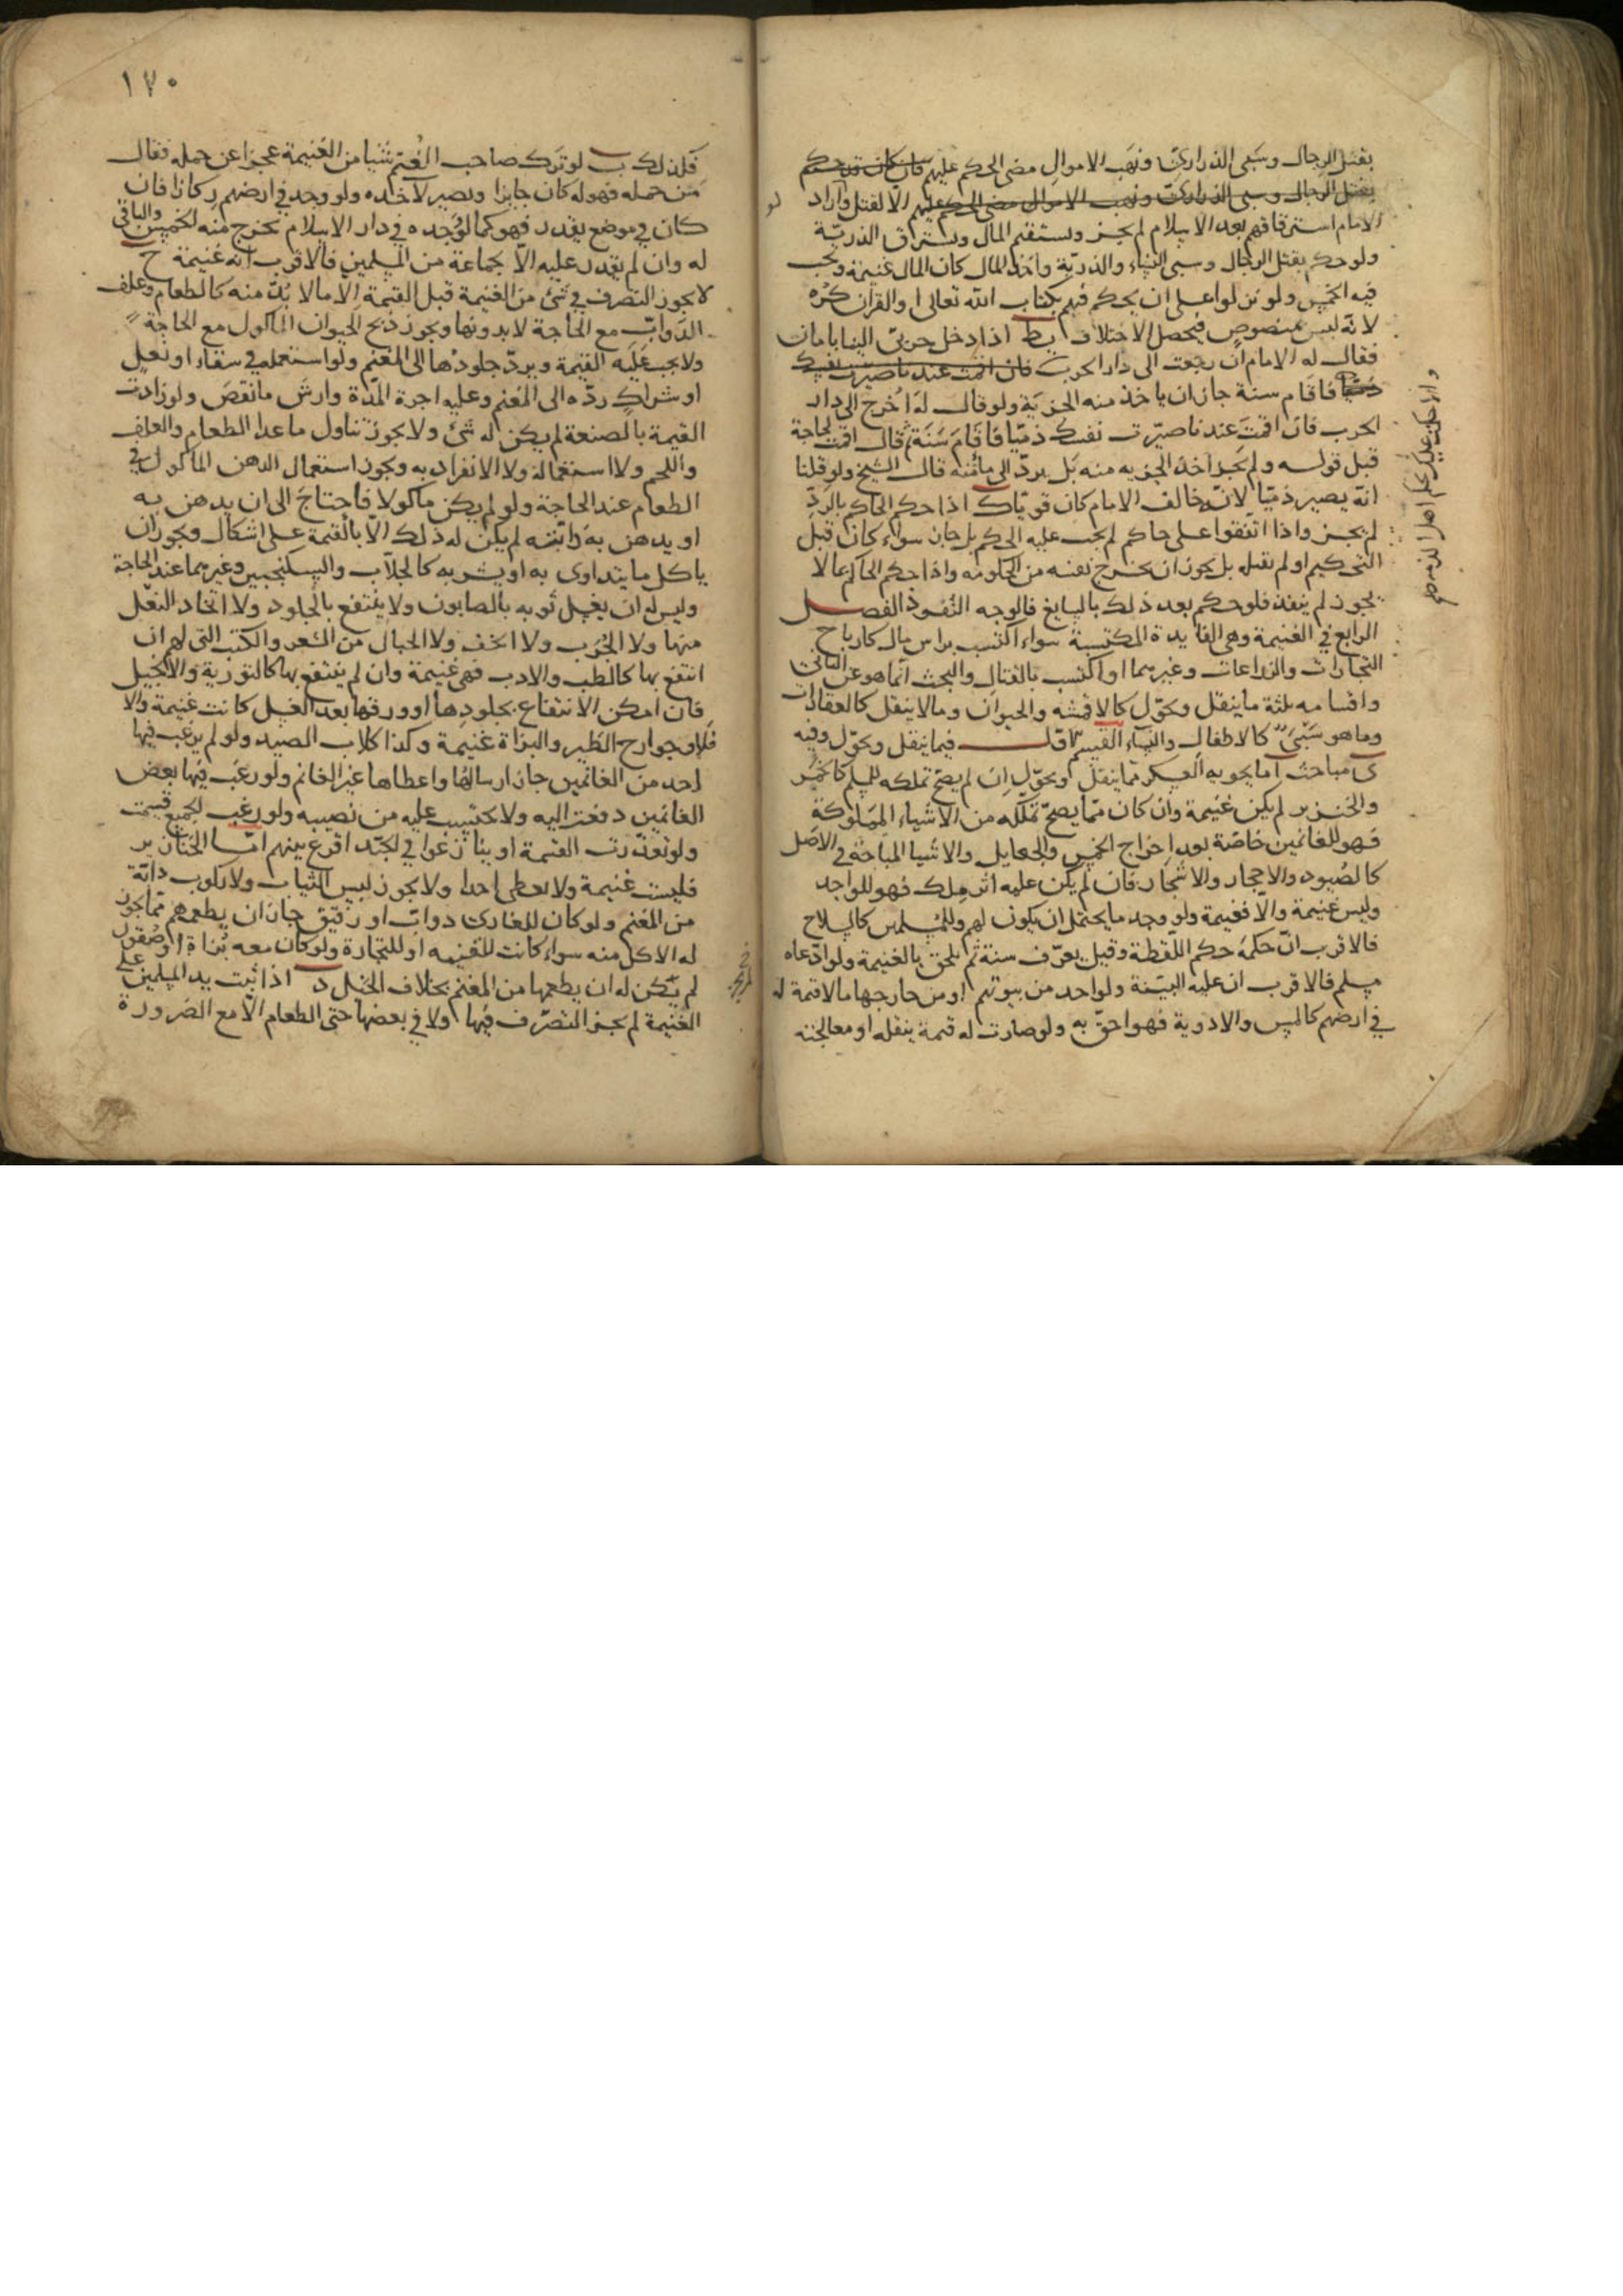 بقتل الرجال وسبى الذرارى ونهب الاموال مضى الحكم عليهم فان كان قد حكم
بقتل الرجال وسبى الذرارى ونهب الاموال مضى الحكم عليهم الا لقتل واراد
الامام استرقاقهم بعد الاسلام لم يجز ويستغنم المال ويسترق الذرية
ولو حكم بقتل الرجال وسبى النساء والذرية واخذ المال كان المال غنيمة ويجب
فيه الخمس ولو نزلوا على ان يحكم فيهم بكتاب الله تعالى او القران كره
لانه ليس بمنصوص فيحصل الاختلاف يط اذا دخل حربى الينا بامان
فقال له الامام ان رجعت الى دار الحرب فان اقمت عندنا صيرت نفسك
ذميا فاقام سنة جاز ان ياخذ منه الجزية ولو قال له اخرج الى دار
الحرب فان اقمت عندنا صيّرت نفسك ذميّا فاقام سنة ثم قال اقمت لحاجة
قبل قوله ولم يجز اخذ الجزيه منه بل يردّ الى مأمنه قال الشيخ ولو قلنا
انه يصير ذميّا لانه خالف الامام كان قويّا ك اذا حكم الحاكم بالردّ
لم يجز واذا اتفقوا على حاكم لم يجب عليه الحكم بل جاز سواء كان قبل
التحكيم او لم تقبله بل يجوز ان يخرج نفسه من الحكومه واذا حكم الحاكم بما لا
يجوز لم ينفذ فلو حكم بعد ذلك بالسايغ فالوجه النفوذ الفصل
الرابع في الغنيمة وهى الفايدة المكتسبة سواء اكتسب براس مال كارباح
التجارات والزراعات وغيرهما او اكتسب بالقتال والبحث انما هو عن الثانى
واقسامه ثلثة ما ينقل ويحوّل كالاقمشه والحيوان وما لا ينقل كالعقارات
وما هو سَبْىٌ كالاطفال والنساء القسم الاول فيما ينقل ويحوّل وفيه
ى مباحث ا ما يحويه العسكر مما ينقل ويحوّل ان لم يصحّ تملكه للمسلم كالخمر
والخنزير لم يكن غنيمة وان كان ممّا يصحّ تملّكه من الاشياء المملوكة
فهو للغانمين خاصّة بعد اخراج الخمس والجعايل والاشيا المباحة في الاصل
كالصُيود والاحجار والاشجار فان لم يكن عليه اثر ملك فهو للواجد
وليس غنيمة والّا فغنيمة ولو وجد ما يحتمل ان يكون لهم وللمسلمين كالسلاح
فالاقرب انّ حكمهُ حكم اللقطة وقيل يعرّف سنة ثم يلحق بالغنيمة ولو ادّعاه
مسلم فالاقرب ان عليه البيّنة ولو اخذ من بيوتهم او من خارجها ما لا قيمة له
في ارضهم كالمسن والادوية فهو احقّ به ولو صارت له قيمة بنقله او معالجته
١٧٠
فكذلك ب لو ترك صاحب المغنم شيا من الغنيمة عجزا عن حمله فقال
من حمله فهو له كان جايزا ويصير لآخذه ولو وجد في ارضهم ركازا فان
كان في موضع يقدر فهو كما لو وجده في دار الاسلام يخرج منه الخمس والباقى
له وان لم يقدر عليه الا بجماعة من المسلمين فالاقرب انه غنيمة ج
لا يجوز التصرف في شئ من الغنيمة قبل القسمة الا ما لا بُدّ منه كالطعام وعلف
الدوابّ مع الحاجة لا بدونها ويجوز ذبح الحيوان الماكول مع الحاجة
ولا يجب عليه القيمة ويردّ جلودها الى المغنم ولو استعمله في سقاء او نعل
او شراك ردّه الى المغنم وعليه اجرة المدّة وارش ما نقص ولو زادت
القيمة بالصنعة لم يكن له شئ ولا يجوز تناول ما عدا الطعام والعلف
واللحم ولا استعماله ولا الانفراد به ويجوز استعمال الدهن الماكول في
الطعام عند الحاجة ولو لم يكن ماكولا فاحتاج الى ان يدهن به
او يدهن به دابّته لم يكن له ذلك الّا بالقيمة على اشكال ويجوز ان
ياكل ما يتداوى به او يشربه كالجلاب والسكنجبين وغيرهما عند الحاجة
وليس له ان يغسل ثوبه بالصابون ولا ينتفع بالجلود ولا اتخاذ النعل
منها ولا الجُرب ولا الخف ولا الحبال من الشعر والكتب التى لهم ان
انتفع بها كالطب والادب فهى غنيمة وان لم ينتفع بها كالتورية والانجيل
فان امكن الانتفاع بجلودها او ورقها بعد الغسل كانت غنيمة والا
فلا وجوارح الطير والبزاة غنيمة وكذا كلاب الصيد ولو لم يرغب فيها
احد من الغانمين جاز ارسالها واعطاها غير الغانم ولو رغب فيها بعض
الغانمين دفعت اليه ولا يحتسب عليه من نصيبه ولو رغب الجميع قسمت
ولو تعذّرت القسمة او تنازعوا في الجيّد اقرع بينهم امّا الخنازير
فليست غنيمة ولا يعطى احدا ولا يجوز لبس الثياب ولا ركوب دابّة
من المغنم ولو كان للغازى دوابّ او رقيق جاز ان يطعمهم ممّا يجوز
له الاكل منه سواء كانت للغنيمه او للتجارة ولو كان معه بُزاة او صُقور
لم يكن له ان يطعمها من المغنم بخلاف الخيل د اذا ثبت يد المسلمين على
الغنيمة لم يجز التصرّف فيها ولا في بعضها حتى الطعام الّا مع الضرورة